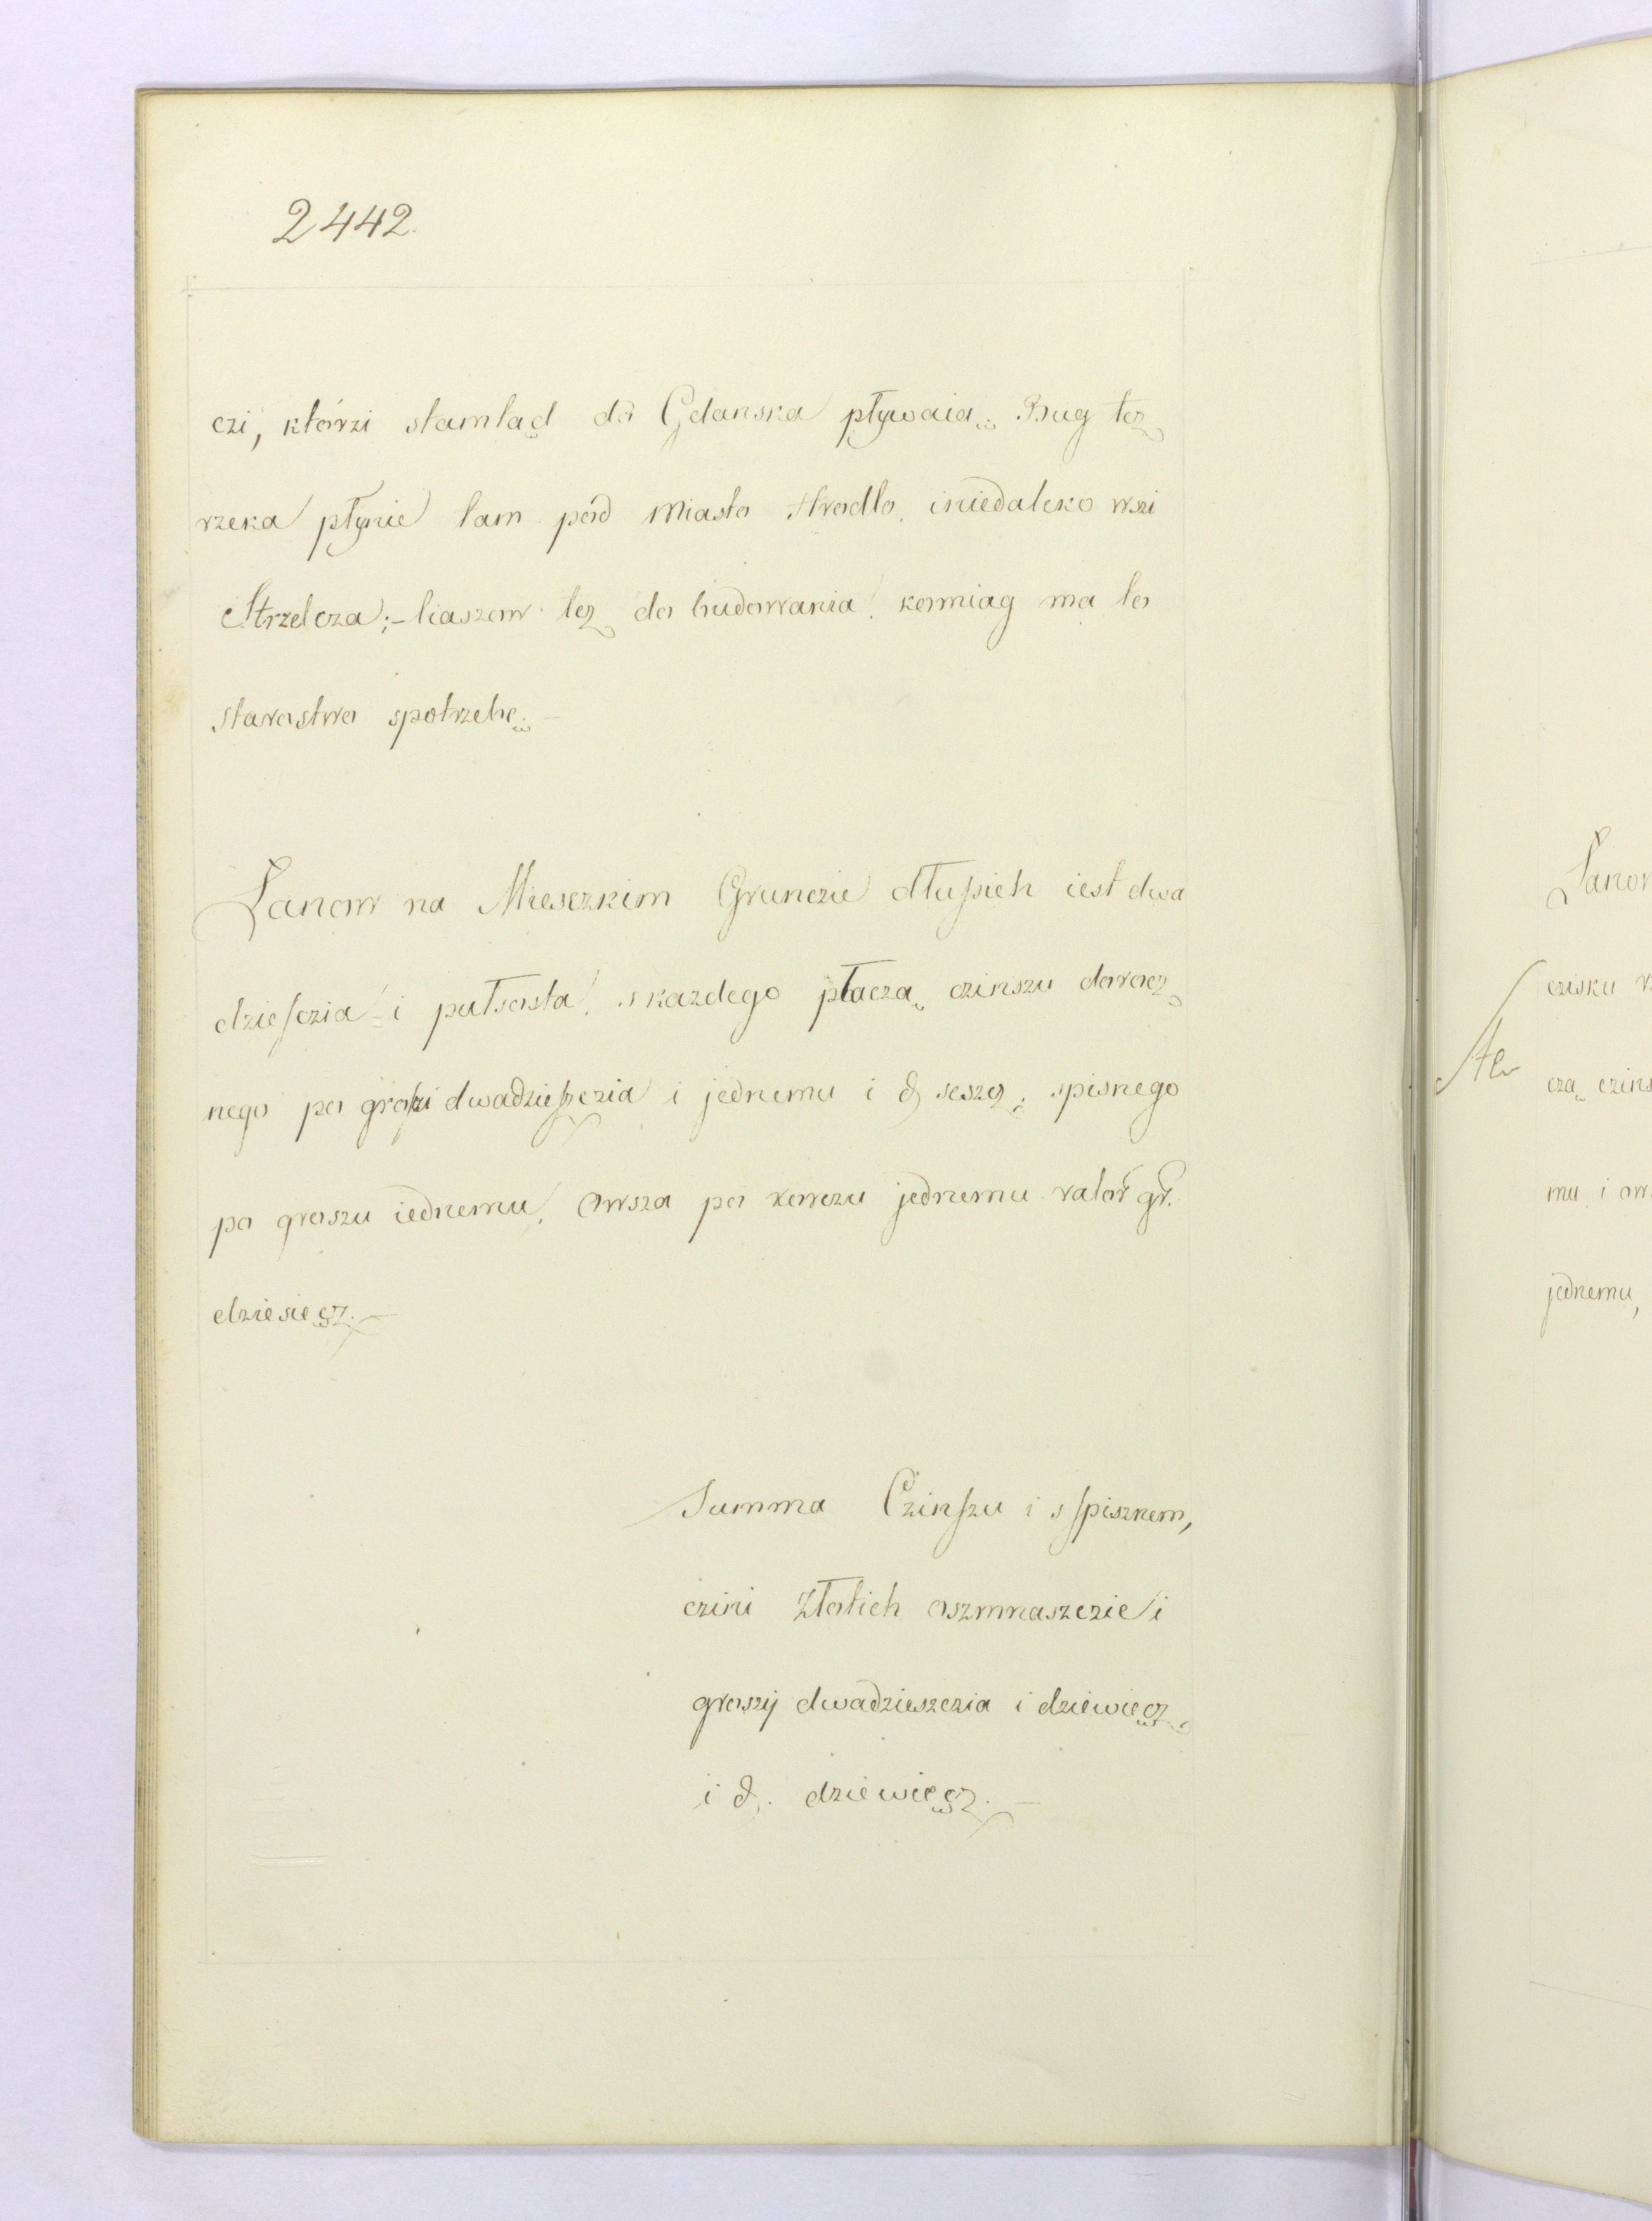 2442.
czi, którzi stamtąd do Gdanska pływaią. Bug tez
rzeka płynie tam pod Miasto Hrodlo, iniedaleko wsi
Strzelcza;– liaszow tez do budowania komiag ma to
starostwo spotrzebę.–
Lanow na Miesczkim Grunczie dłuſsich iest dwa
dzieſczia i pułosta, s kazdego płaczą czinszu dorocz
nego po groſzi dwadzieſzczia i jednemu i ₰ seszcz, spisnego
po groszu iednemu, Owsza po korczu jednemu valor gr.
dziesięcz.–
Summa Czinſzu i s ſpisznem,
czini Złotich oszmnaszczie i
groszij dwadzieszczia i dziewięcz,
i ₰. dziewięcz.–
Lanow
czisku
czą czins
mu i ow
jednemu,